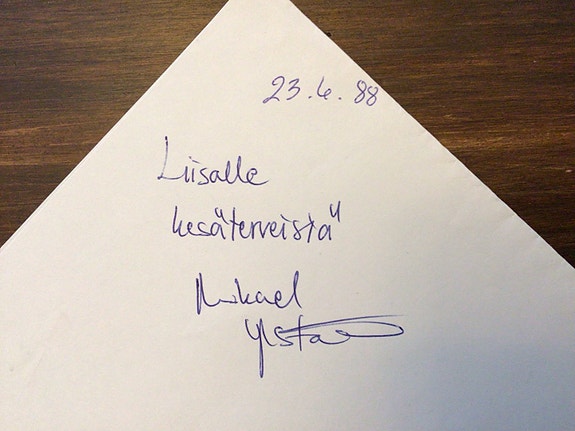 23.6.88
Liisalle
kesäterveistä
Mikael